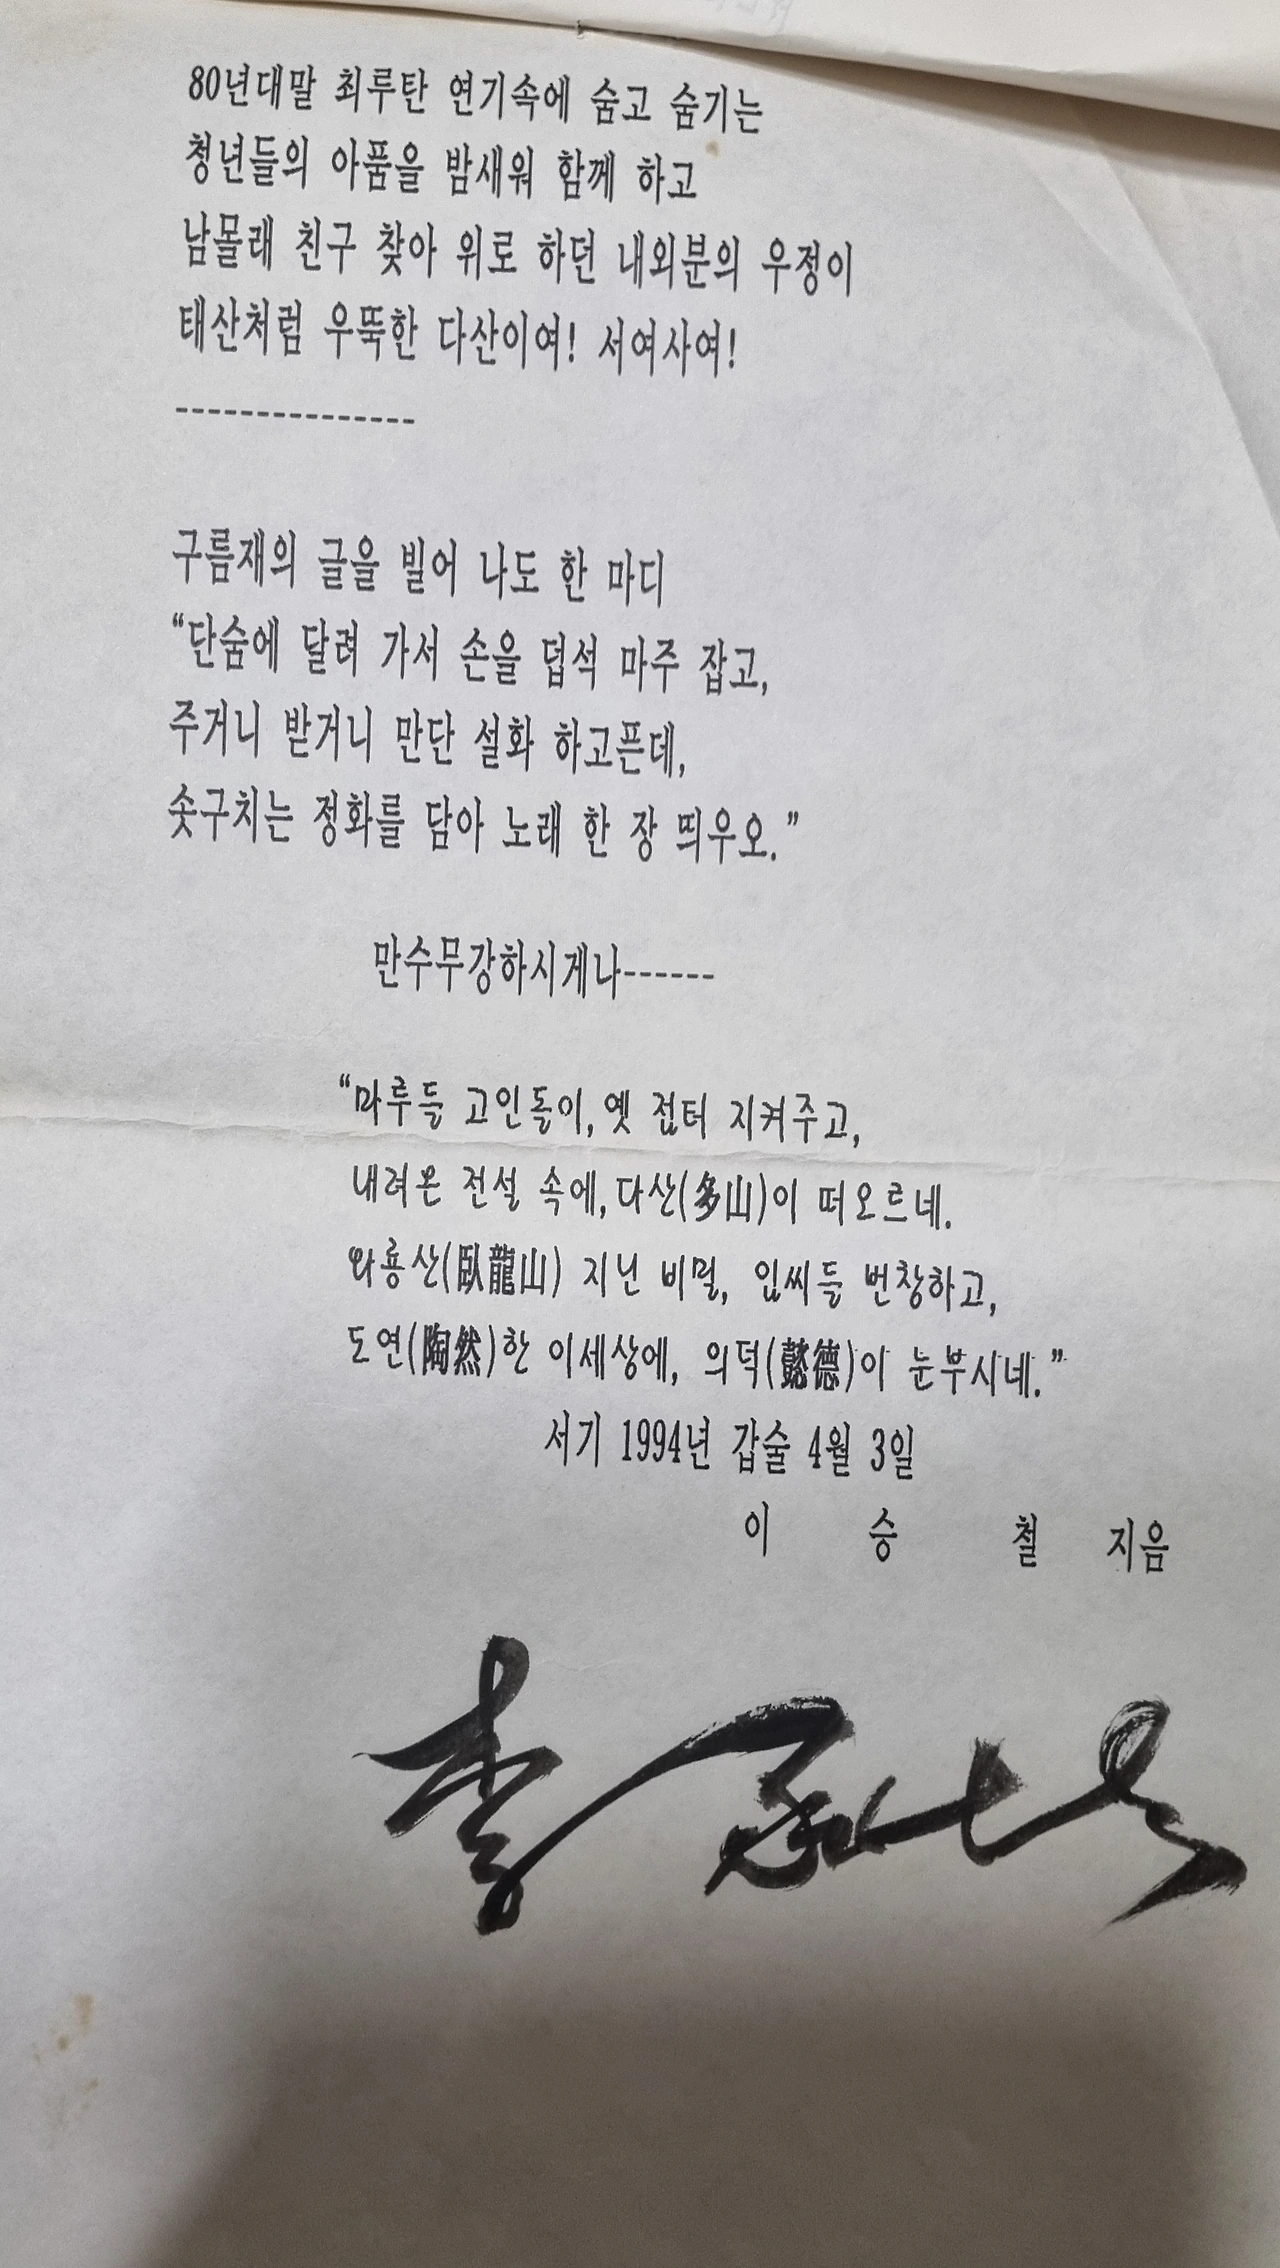 80년대말 최루탄 연기속에 숨고 숨기는
청년들의 아품을 밤새워 함께 하고
남몰래 친구 찾아 위로 하던 내외분의 우정이
태산처럼 우뚝한 다산이여! 서여사여!
---------------
구름재의 글을 빌어 나도 한 마디
“단숨에 달려 가서 손을 덥석 마주 잡고,
주거니 받거니 만단 설화 하고픈데,
솟구치는 정화를 담아 노래 한 장 띄우오.”
만수무강하시게나------
“마루들 고인돌이, 옛 집터 지켜주고,
내려온 전설 속에, 다산(多山)이 떠오르네.
와룡산(臥龍山) 지닌 비밀, 임씨들 번창하고,
도연(陶然)한 이세상에, 의덕(懿德)이 눈부시네.”
서기 1994년 갑술 4월 3일
이 승 철 지음